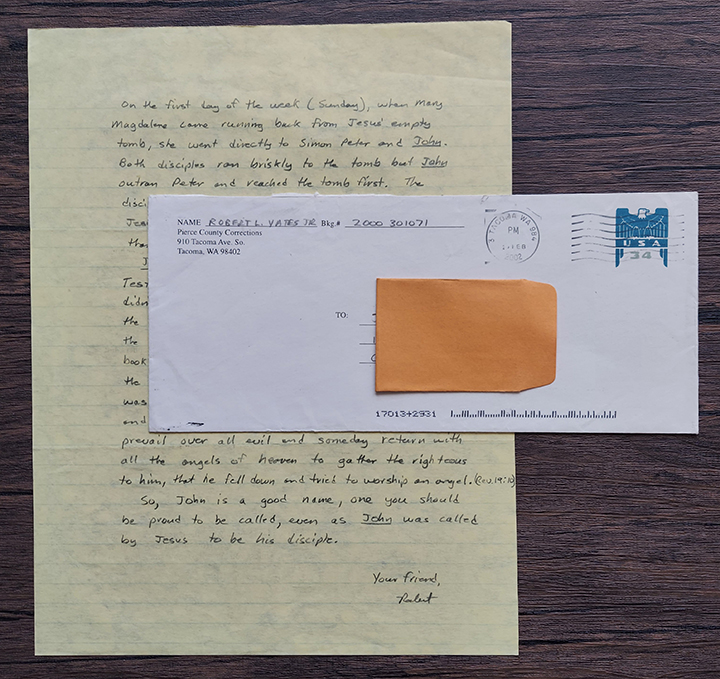 On the first day of the week (Sunday), when Mary
Magdalene came running back from Jesus' empty
tomb, she went directly to Simon Peter and John.
Both disciples ran briskly to the tomb but John
outran Peter and reached the tomb first. The
disci
Jesu
the
J
Tes
didn
the
the
book
the
was
and
prevail over all evil and someday return with
all the angels of heaven to gather the righteous
to him, that he fell down and tried to worship an angel. (Rev. 19:10)
So, John is a good name, one you should
be proud to be called, even as John was called
by Jesus to be his disciple.
Your friend,
Robert
NAME ROBERT L. YATES JR Bkg.# 2000 301071
Pierce County Corrections
910 Tacoma Ave. So.
Tacoma, WA 98402
TACOMA WA 984
PM
FEB
2002
USA
34
TO:
17013+2931